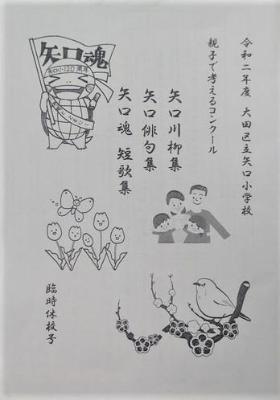 令和二年度 大田区立矢口小学校
親子で考えるコンクール
矢口川柳集
矢口俳句集
矢口魂 短歌集
矢口魂
臨時休校子